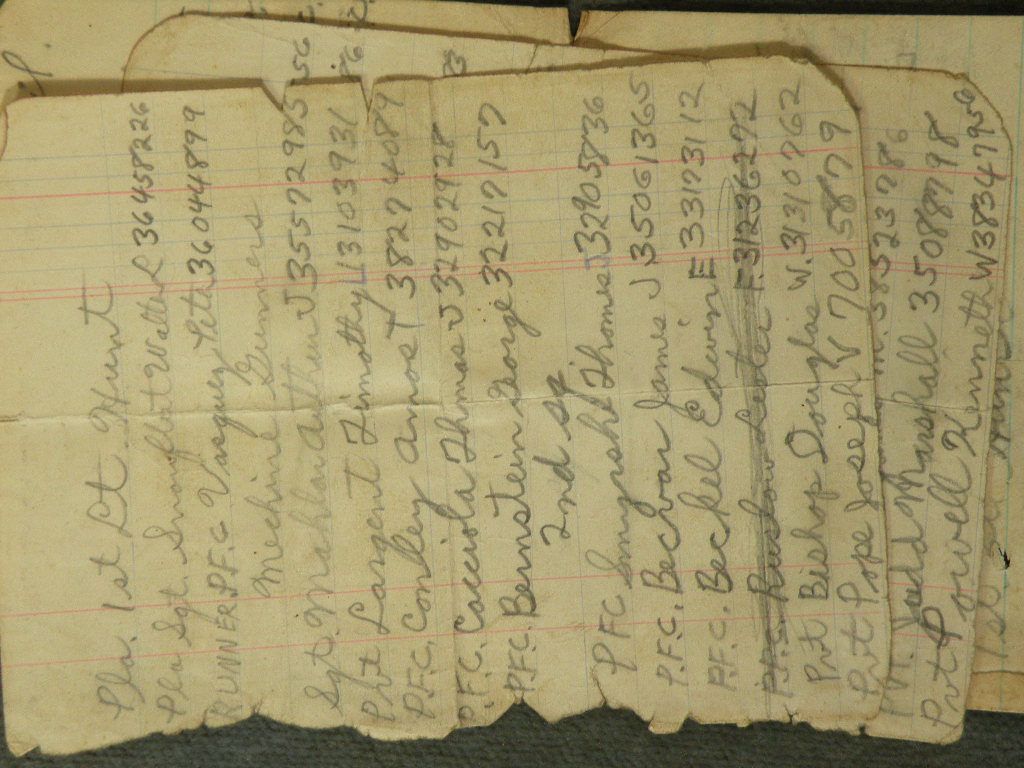 Pla. 1st Lt. Hunt
Pla Sgt. Walter L 36458226
RUNNER P.F.C Vasquez Pete 36044899
Mechine Gunners
Sgt. J 35572985
Pvt Largent Timothy L 13103931
P.F.C. Conley Amos T 38274089
P.F.C. Cacciola Thmas J 32902928
P.F.C. Bernstein George 32217157
2nd sq
PFC Thomas J 32905836
P.F.C. Becvar James J 35061365
P.F.C. Beckel Edwin E 33173112
P.F.C. F. 31236272
Pvt Bishop Douglas W. 31310762
Pvt Pope Joseph V 7005879
Pvt. Judd Marshall 35088798
Pvt Powell Kenneth W 38347956